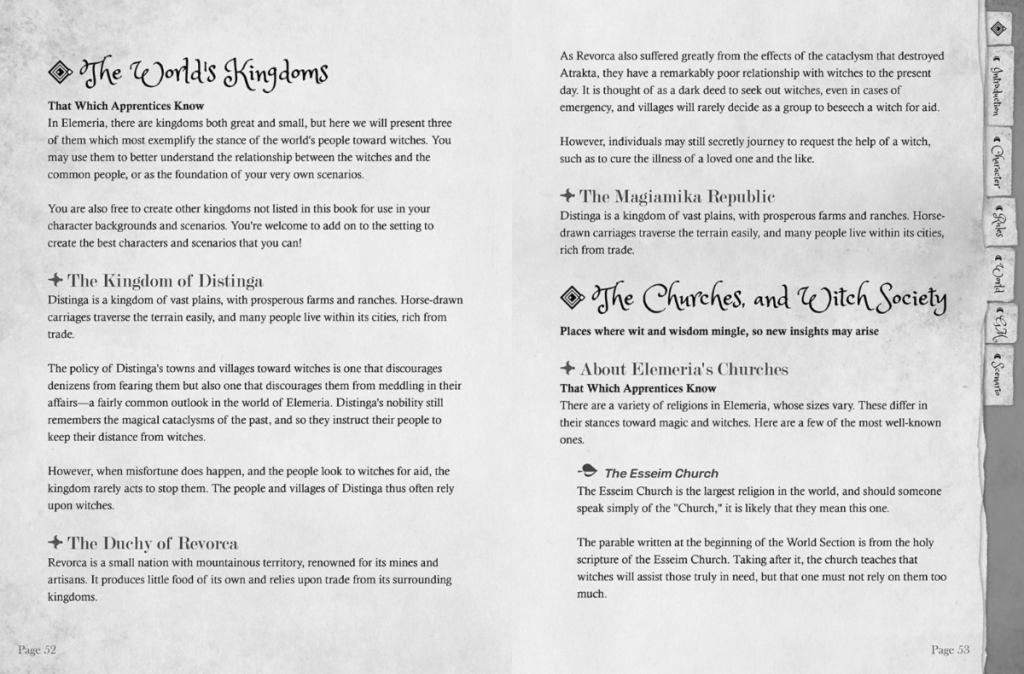 The World's Kingdoms
That Which Apprentices Know
In Elemeria, there are kingdoms both great and small, but here we will present three
of them which most exemplify the stance of the world's people toward witches. You
may use them to better understand the relationship between the witches and the
common people, or as the foundation of your very own scenarios.
You are also free to create other kingdoms not listed in this book for use in your
character backgrounds and scenarios. You're welcome to add on to the setting to
create the best characters and scenarios that you can!
The Kingdom of Distinga
Distinga is a kingdom of vast plains, with prosperous farms and ranches. Horse-drawn
carriages traverse the terrain easily, and many people live within its cities, rich from
trade.
The policy of Distinga's towns and villages toward witches is one that discourages
denizens from fearing them but also one that discourages them from meddling in their
affairs—a fairly common outlook in the world of Elemeria. Distinga's nobility still
remembers the magical cataclysms of the past, and so they instruct their people to
keep their distance from witches.
However, when misfortune does happen, and the people look to witches for aid, the
kingdom rarely acts to stop them. The people and villages of Distinga thus often rely
upon witches.
The Duchy of Revorca
Revorca is a small nation with mountainous territory, renowned for its mines and
artisans. It produces little food of its own and relies upon trade from its surrounding
kingdoms.
Page 52
As Revorca also suffered greatly from the effects of the cataclysm that destroyed
Atrakta, they have a remarkably poor relationship with witches to the present
day. It is thought of as a dark deed to seek out witches, even in cases of
emergency, and villages will rarely decide as a group to beseech a witch for aid.
However, individuals may still secretly journey to request the help of a witch,
such as to cure the illness of a loved one and the like.
The Magiamika Republic
Distinga is a kingdom of vast plains, with prosperous farms and ranches. Horse-
drawn carriages traverse the terrain easily, and many people live within its cities,
rich from trade.
The Churches, and Witch Society
Places where wit and wisdom mingle, so new insights may arise
About Elemeria's Churches
That Which Apprentices Know
There are a variety of religions in Elemeria, whose sizes vary. These differ in
their stances toward magic and witches. Here are a few of the most well-known
ones.
The Esseim Church
The Esseim Church is the largest religion in the world, and should someone
speak simply of the "Church," it is likely that they mean this one.
The parable written at the beginning of the World Section is from the holy
scripture of the Esseim Church. Taking after it, the church teaches that
witches will assist those truly in need, but that one must not rely on them too
much.
Page 53
Introduction
Character
Rules
World
GM
Scenario